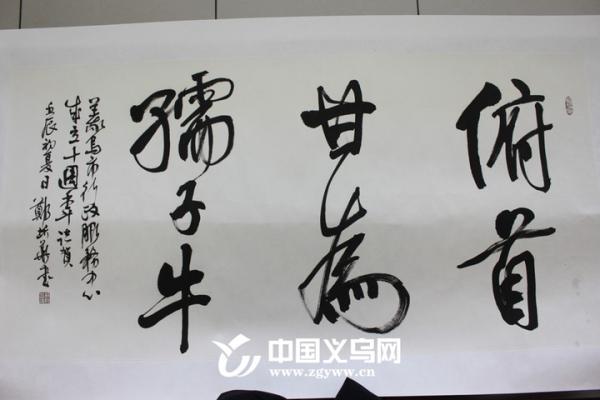 俯首
甘為
孺子牛
義烏市行政服務中心
成立十週年誌賀
壬辰初夏日 鄭
中国义乌网
www.zgyww.cn